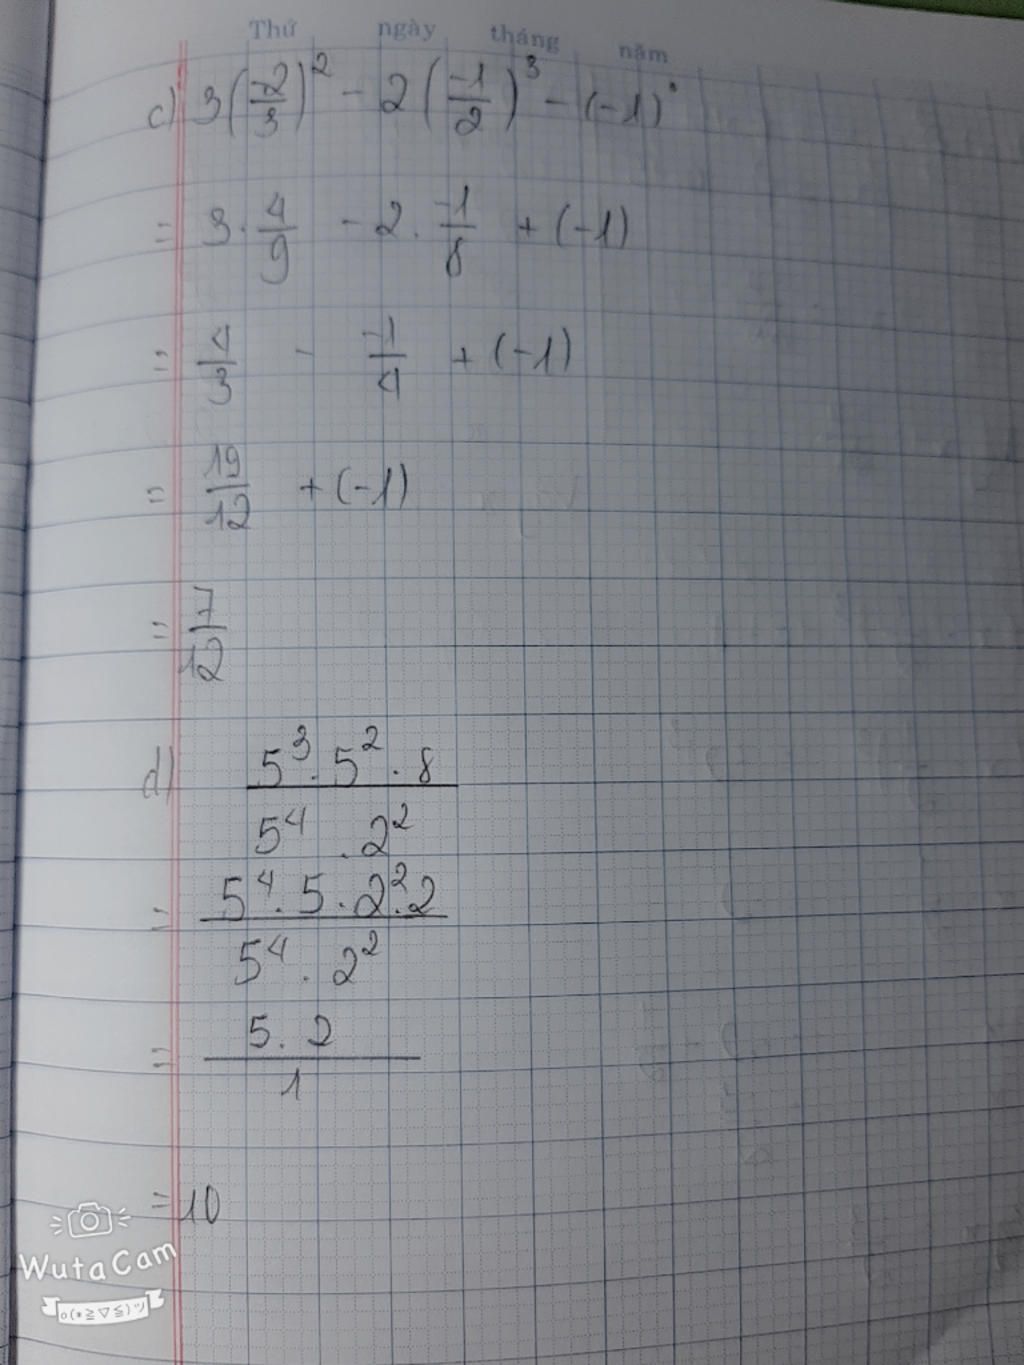 Thứ ngày tháng năm
c) 3(-2/3)² - 2(-1/2)³ - (-1)°
= 3 · 4/9 - 2 · -1/8 + (-1)
= 4/3 - -1/4 + (-1)
= 19/12 + (-1)
= 7/12
d) 5³ · 5² · 8 / 5⁴ · 2²
= 5⁴ · 5 · 2² · 2 / 5⁴ · 2²
= 5 · 2 / 1
= 10
WutaCam
o(*≧▽≦)ツ